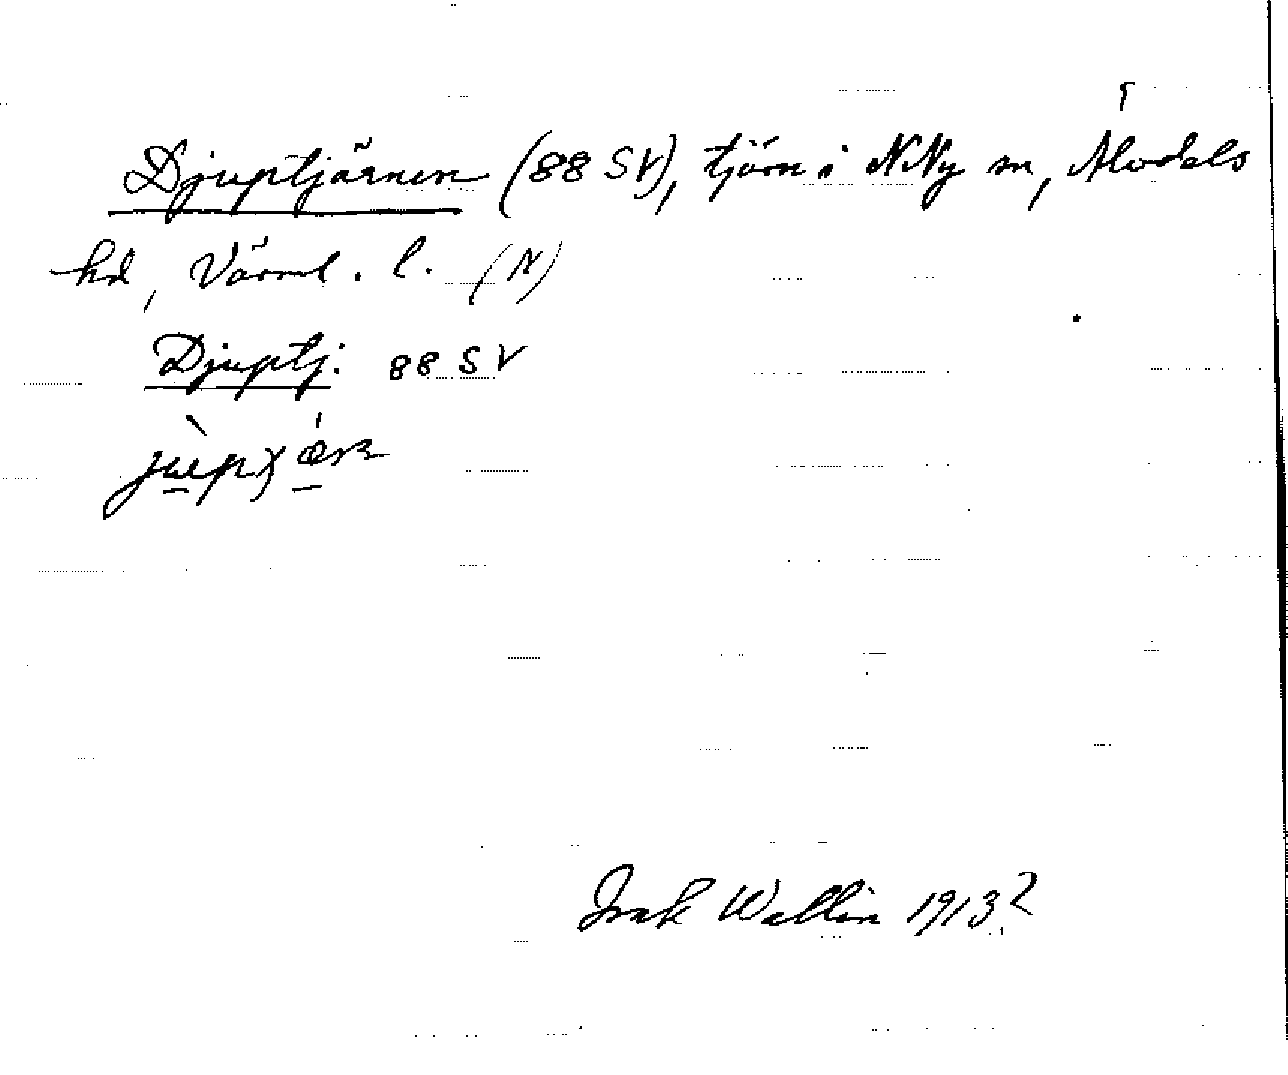 Djuptjärnen (88 SV), tjärn i NNy sn, Älvdals
hd, Värml. l. (N)
Djuptj. 88 SV
Isak Wallin 1913?